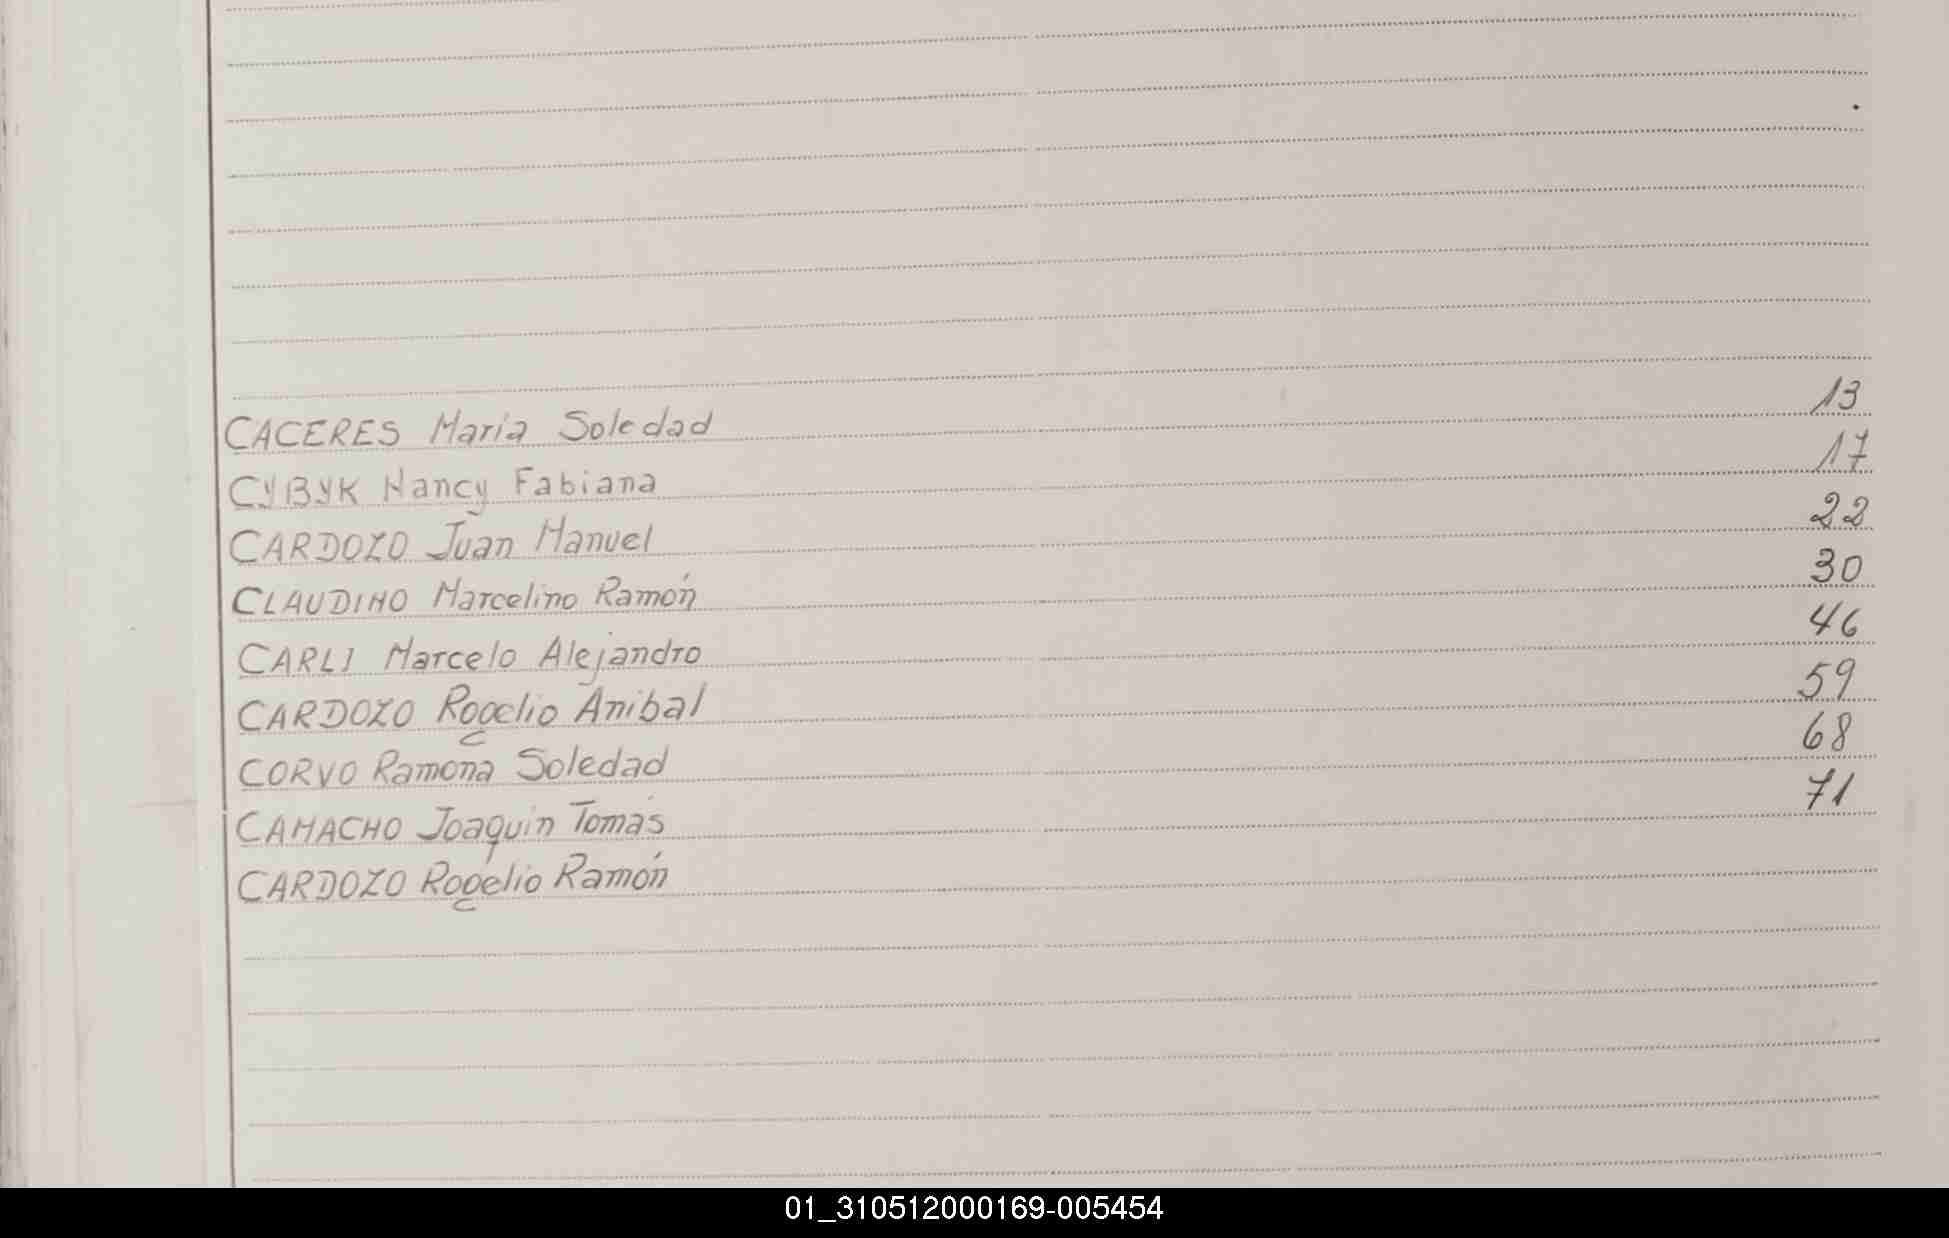 CACERES Maria Soledad 13
CYBYK Nancy Fabiana 17
CARDOZO Juan Manuel 22
CLAUDINO Marcelino Ramón 30
CARLI Marcelo Alejandro 46
CARDOZO Rogelio Anibal 59
CORVO Ramona Soledad 68
CAMACHO Joaquin Tomás 71
CARDOZO Rogelio Ramón
01_310512000169-005454